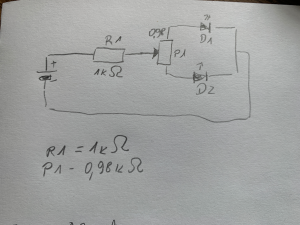 R1
0,98
D1
P1
+
1kΩ
D2
R1 = 1kΩ
P1 - 0,98kΩ